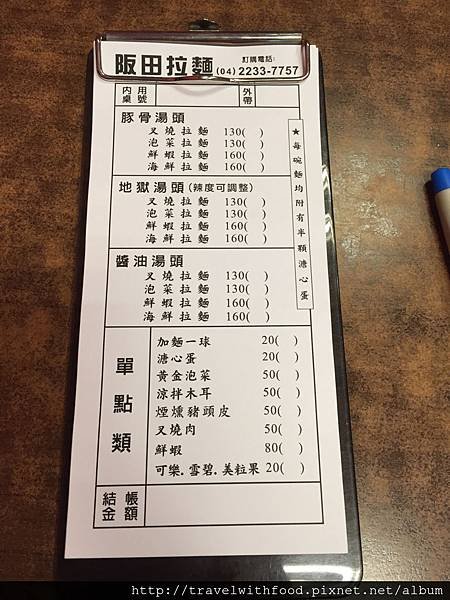 阪田拉麵 訂購電話: (04) 2233-7757
內用桌號 外帶
豚骨湯頭
叉燒拉麵 130( )
泡菜拉麵 130( )
鮮蝦拉麵 160( )
海鮮拉麵 160( )
地獄湯頭(辣度可調整)
叉燒拉麵 130( )
泡菜拉麵 130( )
鮮蝦拉麵 160( )
海鮮拉麵 160( )
醬油湯頭
叉燒拉麵 130( )
泡菜拉麵 130( )
鮮蝦拉麵 160( )
海鮮拉麵 160( )
★每碗麵均附有半顆溏心蛋
單點類
加麵一球 20( )
溏心蛋 20( )
黃金泡菜 50( )
涼拌木耳 50( )
煙燻豬頭皮 50( )
叉燒肉 50( )
鮮蝦 80( )
可樂.雪碧.美粒果 20( )
結帳金額
http://travelwithfood.pixnet.net/album